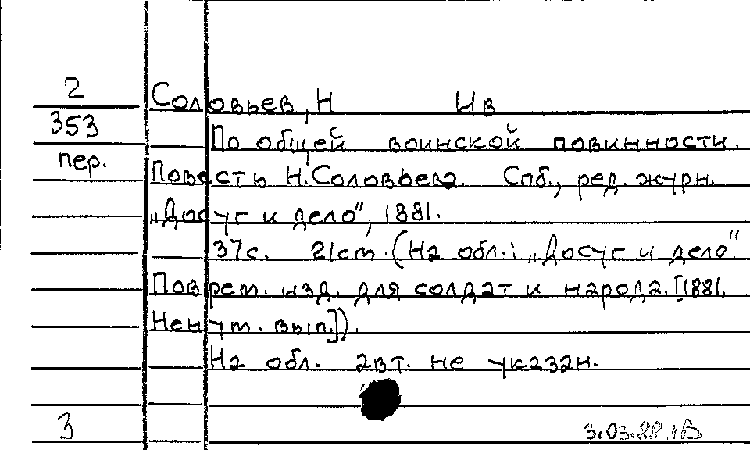 2
353
пер.
Соловьев, Н Ив
По общей воинской повинности.
Повесть Н.Соловьева. Спб., ред. журн.
„Досуг и дело“, 1881.
37с. 21см. (На обл.: „Досуг и дело“.
Поврем. изд. для солдат и народа. [1881.
Ненум. вып.]).
На обл. авт. не указан.
3